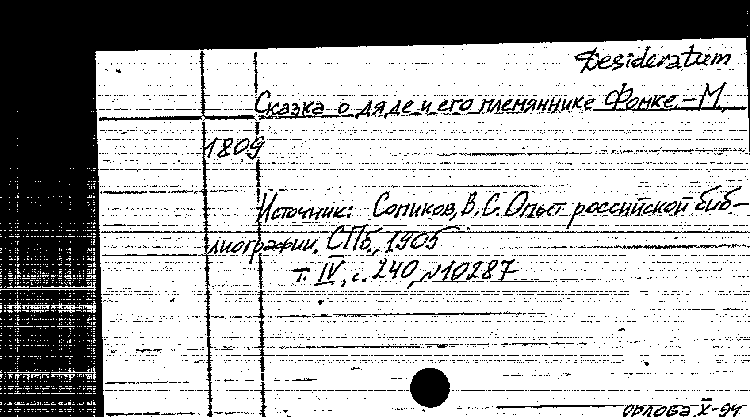 Desideratum
Сказка о дяде и его племяннике Фомке. – М.,
1809
Источник: Сопиков, В.С. Опыт российской биб-
лиографии. СПб., 1905
т. IV, с. 240, №10287
Орлова X-94